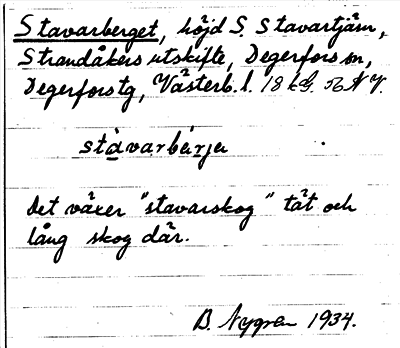 Stavarberget, höjd S. Stavartjärn,
Strandåkers utskifte, Degerfors sn,
Degerforstg, Västerb. l. 18 kG. 56 N.V.
stàvarbærjə
Det växer "stavarskog" tät och
lång skog där.
B. Nygren 1934.